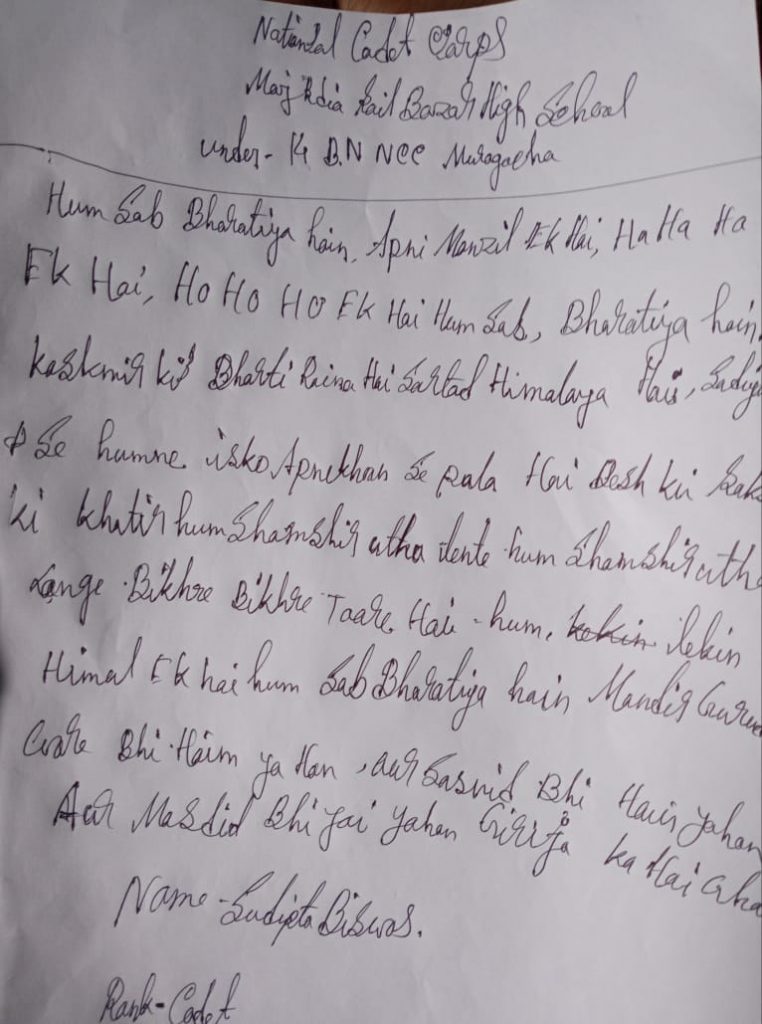 National Cadet Corps
Majhdia Rail Bazar High School
under- 14 B.N NCC Muragacha
Hum Sab Bharatiya hain, Apni Manzil Ek Hai, Ha Ha Ha
Ek Hai, Ho Ho Ho Ek Hai Hum Sab, Bharatiya hain.
Kashmir ki Dharti Raina Hai Sartad Himalaya Hai, Sadiyo
Se humne isko Apnekhan Se pala Hai Desh ki Rak
ki khatir hum Shamshir utha lente hum Shamshir uth
Lange Bikhre Bikhre Taare Hai - hum, lekin
Himal Ek hai hum Sab Bharatiya hain Mandir Guru
Dware Bhi Haim ya Han, aur Sasvid Bhi Hain yahan
Aur Masdid Bhi yai yahan Girija ka Hai aha
Name - Sudipta Biswas.
Rank - Cadet